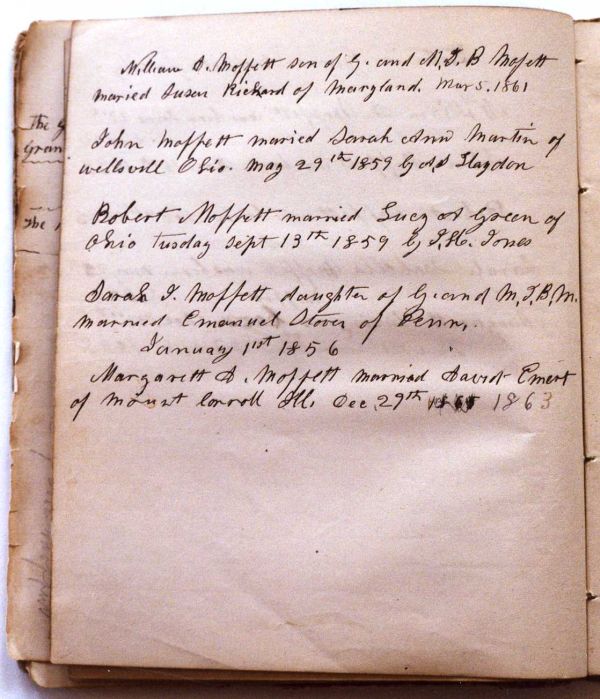 William D. Moffett son of G. and M. T. B Moffett
maried Susan Rickard of Maryland. Mar 5. 1861
John Moffett married Sarah Ann Martin of
wellsvill Ohio. May 29th 1859 by
Robert Moffett married Lucy A Green of
Ohio tusday Sept 13th 1859 by J. H. Jones
Sarah J. Moffett daughter of G. and M. T. B. M.
married Emanuel Stover of Penn.
January 1st 1856
Margarett D. Moffett married David Emert
of Mount Carroll Ill. Dec. 29th 1863
The
Gran
The